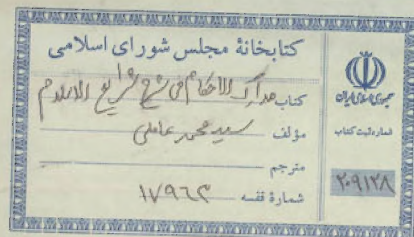 کتابخانهٔ مجلس شورای اسلامی
کتاب مدارک الاحکام فی شرح شرایع الاسلام
مؤلف سید محمد عاملی
مترجم
شمارهٔ قفسه ۱۷۹۶۳
جمهوری اسلامی ایران
شماره ثبت کتاب
۲۰۹۱۲۸